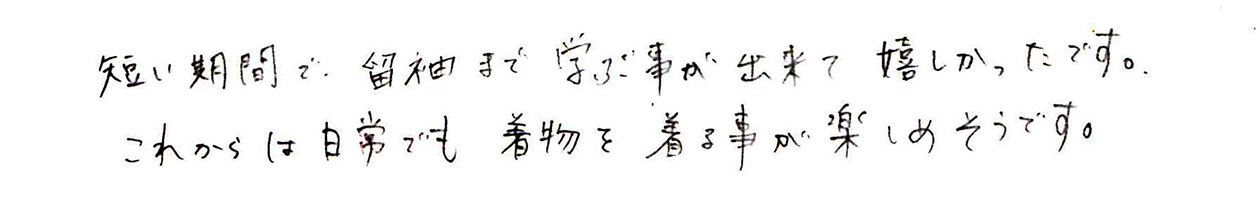 短い期間で、留袖まで学ぶ事が出来て嬉しかったです。
これからは日常でも着物を着る事が楽しめそうです。